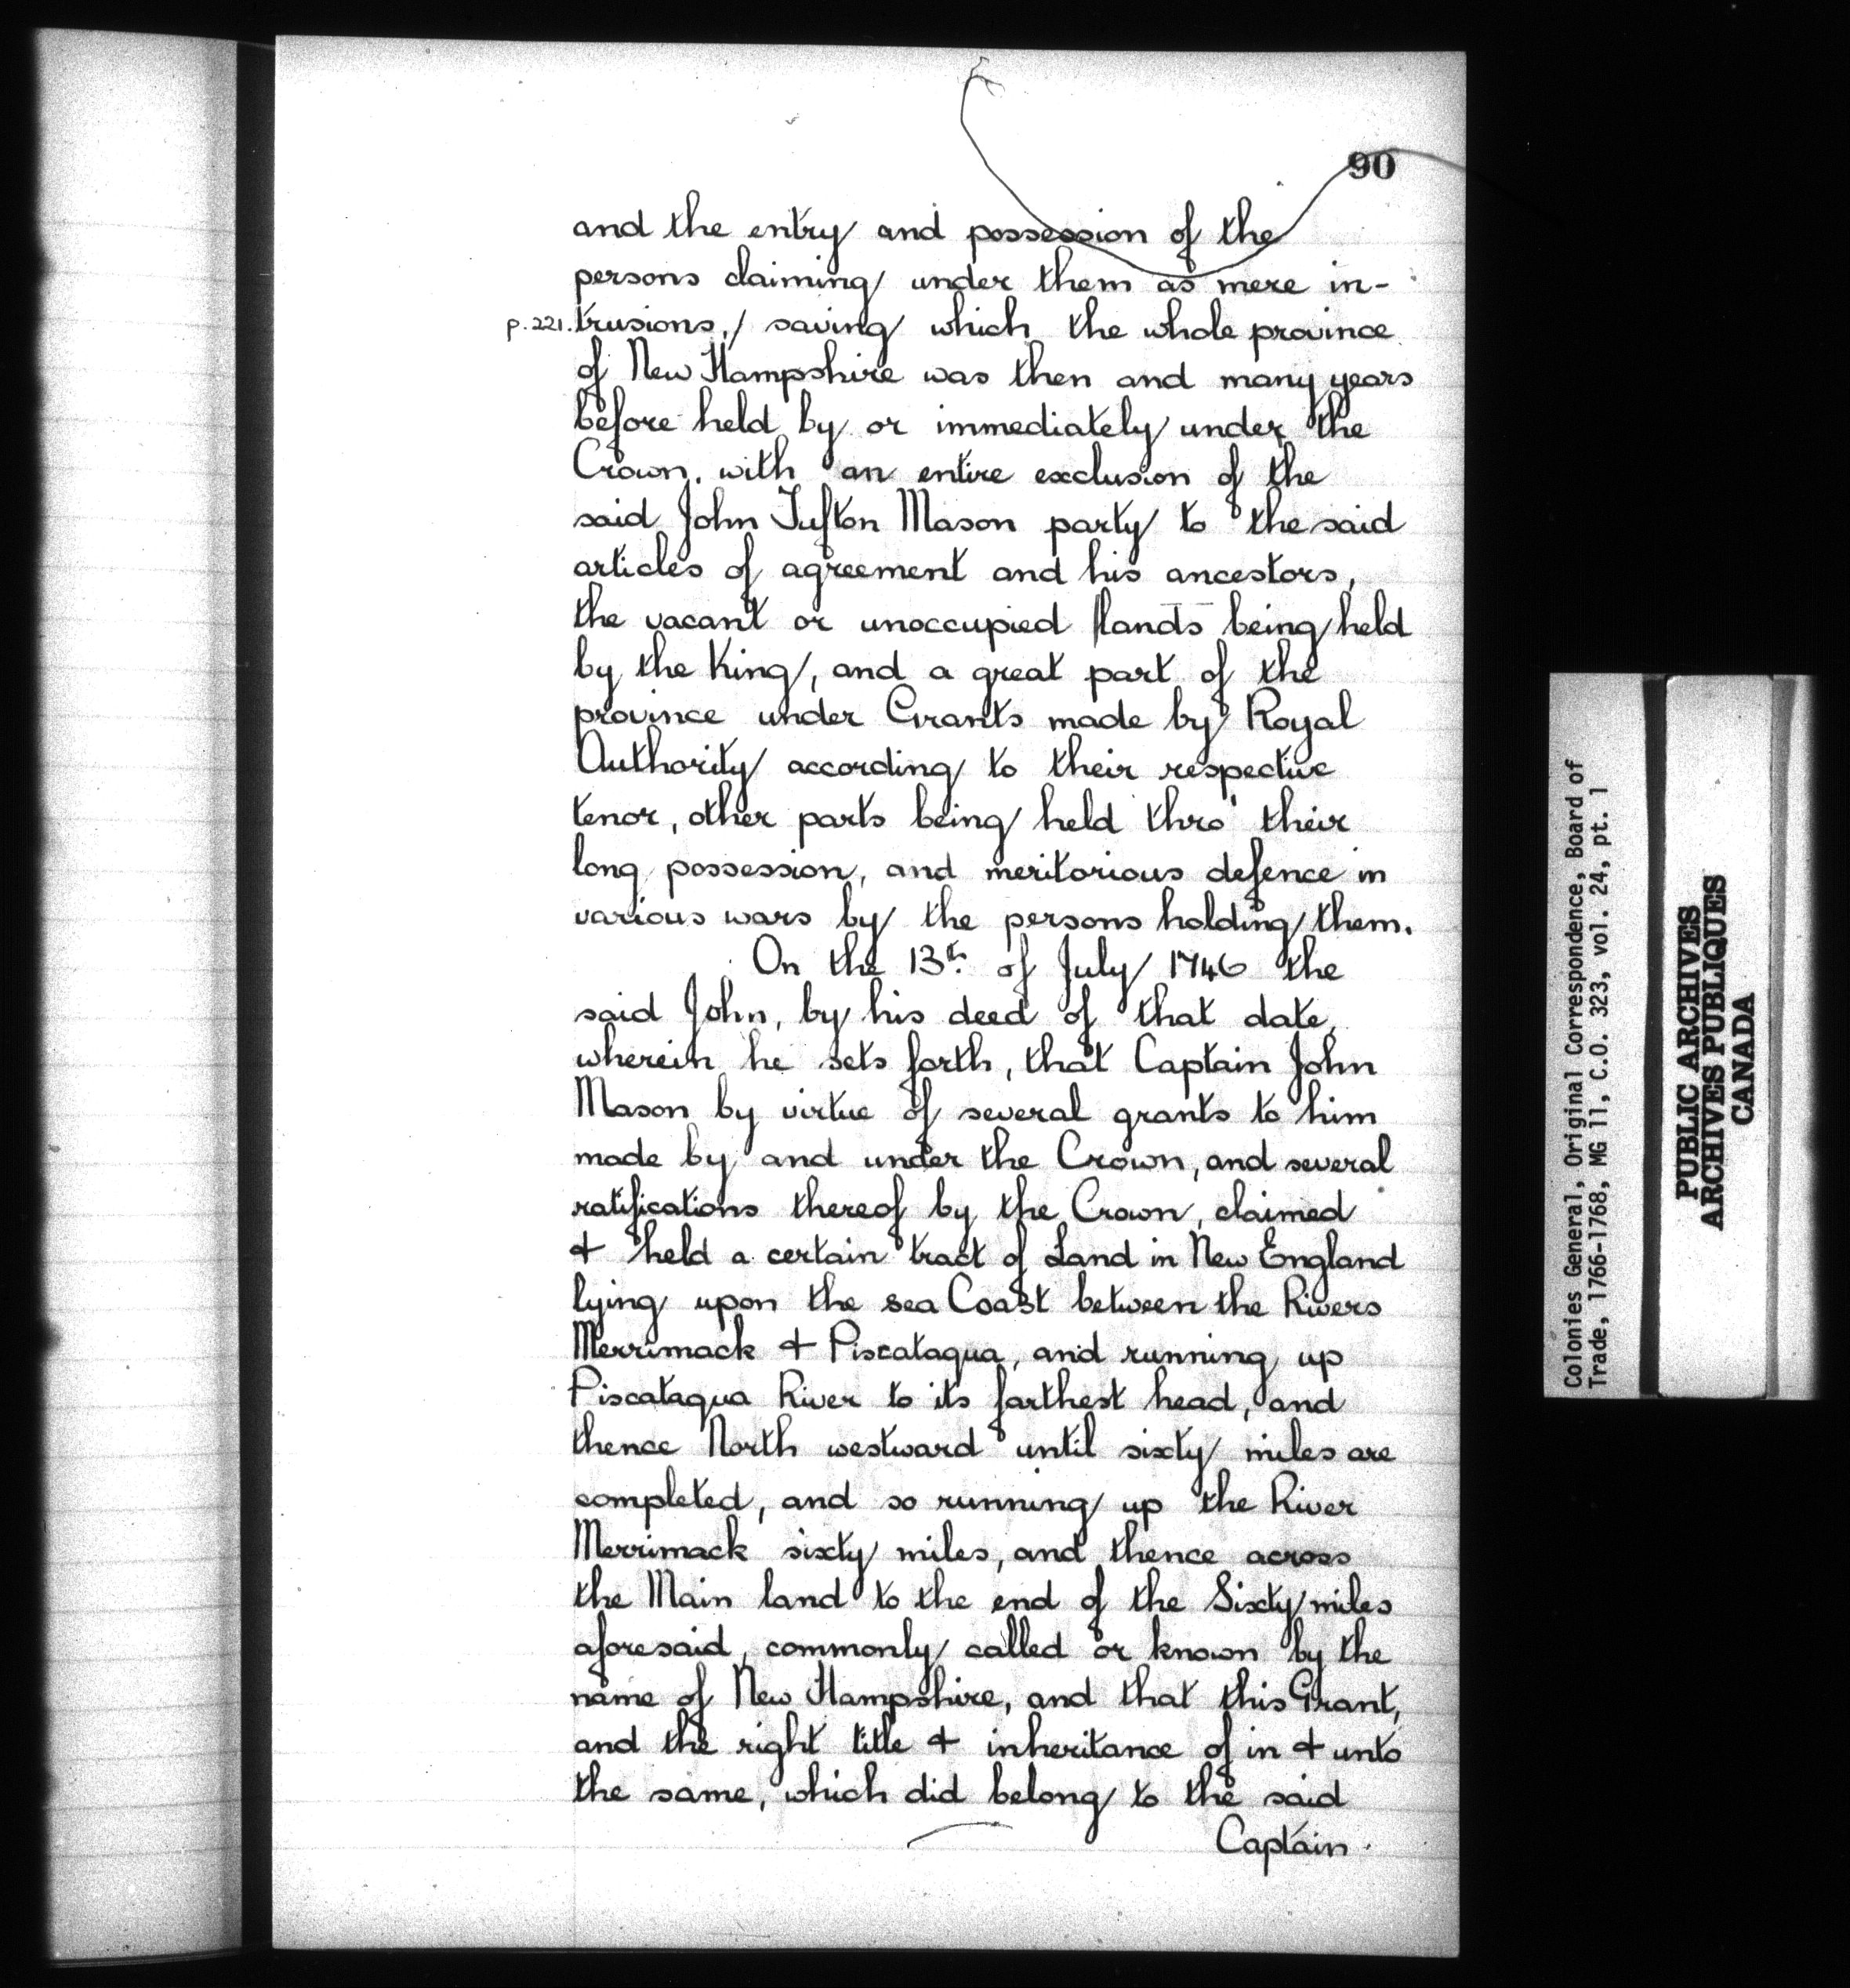 90
and the entry and possession of the
persons claiming under them as mere in-
p.221. trusions,/ saving which the whole province
of New Hampshire was then and many years
before held by or immediately under the
Crown, with an entire exclusion of the
said John Tufton Mason party to the said
articles of agreement and his ancestors,
the vacant or unoccupied lands being held
by the King, and a great part of the
province under Grants made by Royal
Authority according to their respective
tenor, other parts being held thro' their
long possession, and meritorious defence in
various wars by the persons holding them.
On the 13th. of July 1746 the
said John, by his deed of that date,
wherein he sets forth, that Captain John
Mason by virtue of several grants to him
made by and under the Crown, and several
ratifications thereof by the Crown, claimed
& held a certain tract of Land in New England
lying upon the sea Coast between the Rivers
Merrimack & Piscataqua, and running up
Piscataqua River to its farthest head, and
thence North westward until sixty miles are
completed, and so running up the River
Merrimack sixty miles, and thence across
the Main land to the end of the Sixty miles
aforesaid, commonly called or known by the
name of New Hampshire, and that this Grant,
and the right title & inheritance of in & unto
the same, which did belong to the said
Captain
Colonies General, Original Correspondence, Board of
Trade, 1766-1768, MG 11, C.O. 323, vol. 24, pt. 1
PUBLIC ARCHIVES
ARCHIVES PUBLIQUES
CANADA